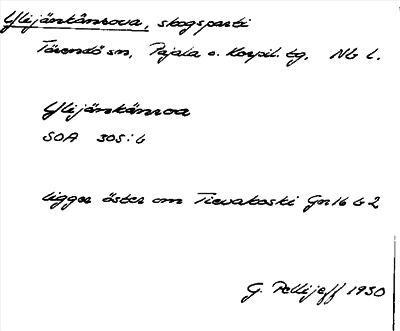 Ylijänkänrova, skogsparti
Tärendö sn, Pajala o. Korpil. tg, Nb l.
Ylijänkänroa
SOA 305:6
ligger öster om Tievakoski Gn 16 b 2
G. Pellijeff 1930